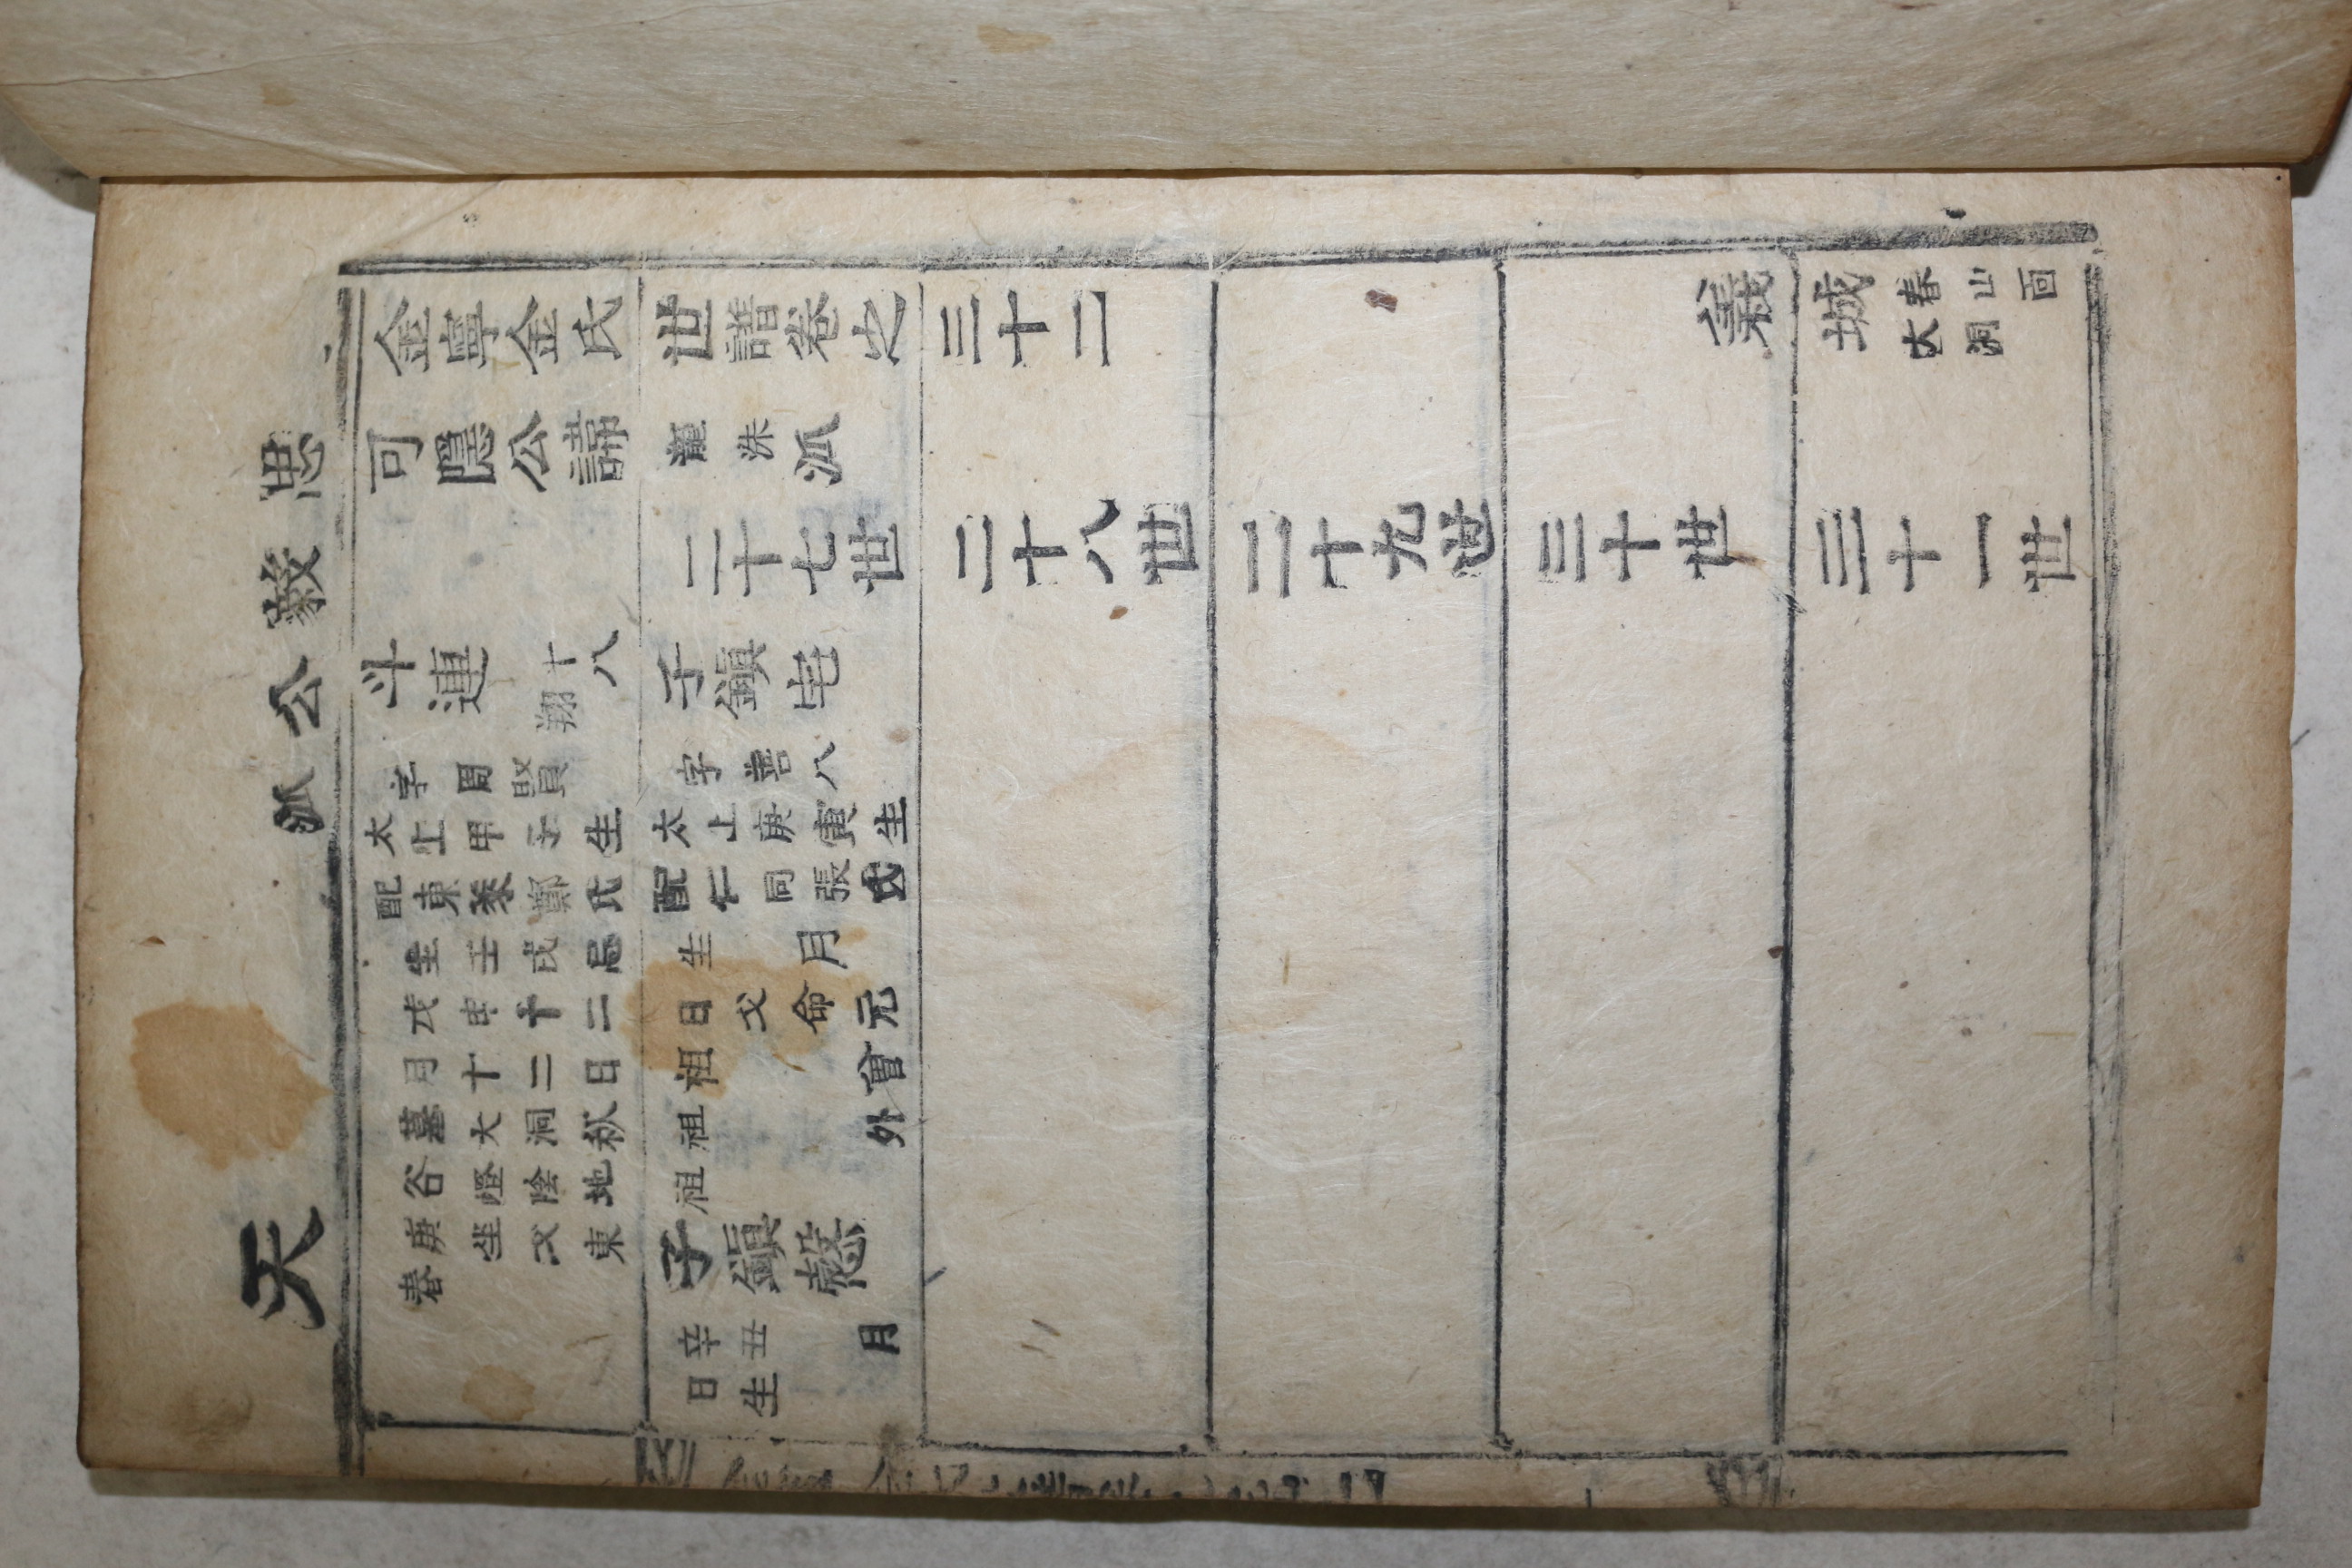 忠毅公派 天
金寧金氏世譜卷之三十二 義城 春山面
大洞
可隱公諱龍洙派
二十七世 二十八世 二十九世 三十世 三十一世
斗連 十八
翔
字周賢
太上甲子生
配東萊鄭氏
生壬戌忌
戊申十二
月十二日
墓大洞秋
谷嶝陰地
庚坐父東
春
子鎭宅
字善八
太上庚寅生
配仁同張氏
生 月
日父命元
祖 曾
祖 外
祖
子鎭慤
辛丑 月
日生